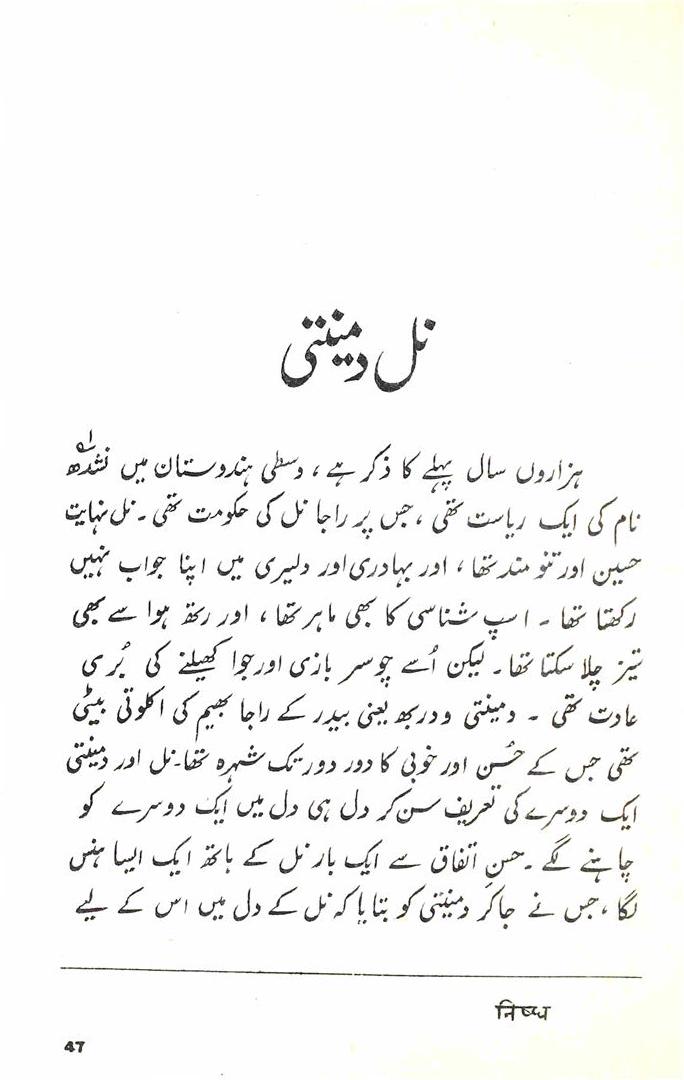 نل دمینتی
ہزاروں سال پہلے کا ذکر ہے، وسطی ہندوستان میں نشدھ لہ
نام کی ایک ریاست تھی، جس پر راجا نل کی حکومت تھی۔ نل نہایت
حسین اور تنو مند تھا، اور بہادری اور دلیری میں اپنا جواب نہیں
رکھتا تھا۔ اسپ شناسی کا بھی ماہر تھا، اور رتھ ہوا سے بھی
تیز چلا سکتا تھا۔ لیکن اُسے چوسر بازی اور جوا کھیلنے کی بُری
عادت تھی۔ دمینتی ودربھ یعنی بیدر کے راجا بھیم کی اکلوتی بیٹی
تھی جس کے حُسن اور خوبی کا دور دور تک شہرہ تھا۔ نل اور دمینتی
ایک دوسرے کی تعریف سن کر دل ہی دل میں ایک دوسرے کو
چاہنے لگے۔ حسنِ اتفاق سے ایک بار نل کے ہاتھ ایک ایسا ہنس
لگا، جس نے جا کر دمینتی کو بتایا کہ نل کے دل میں اس کے لیے
निषध
47